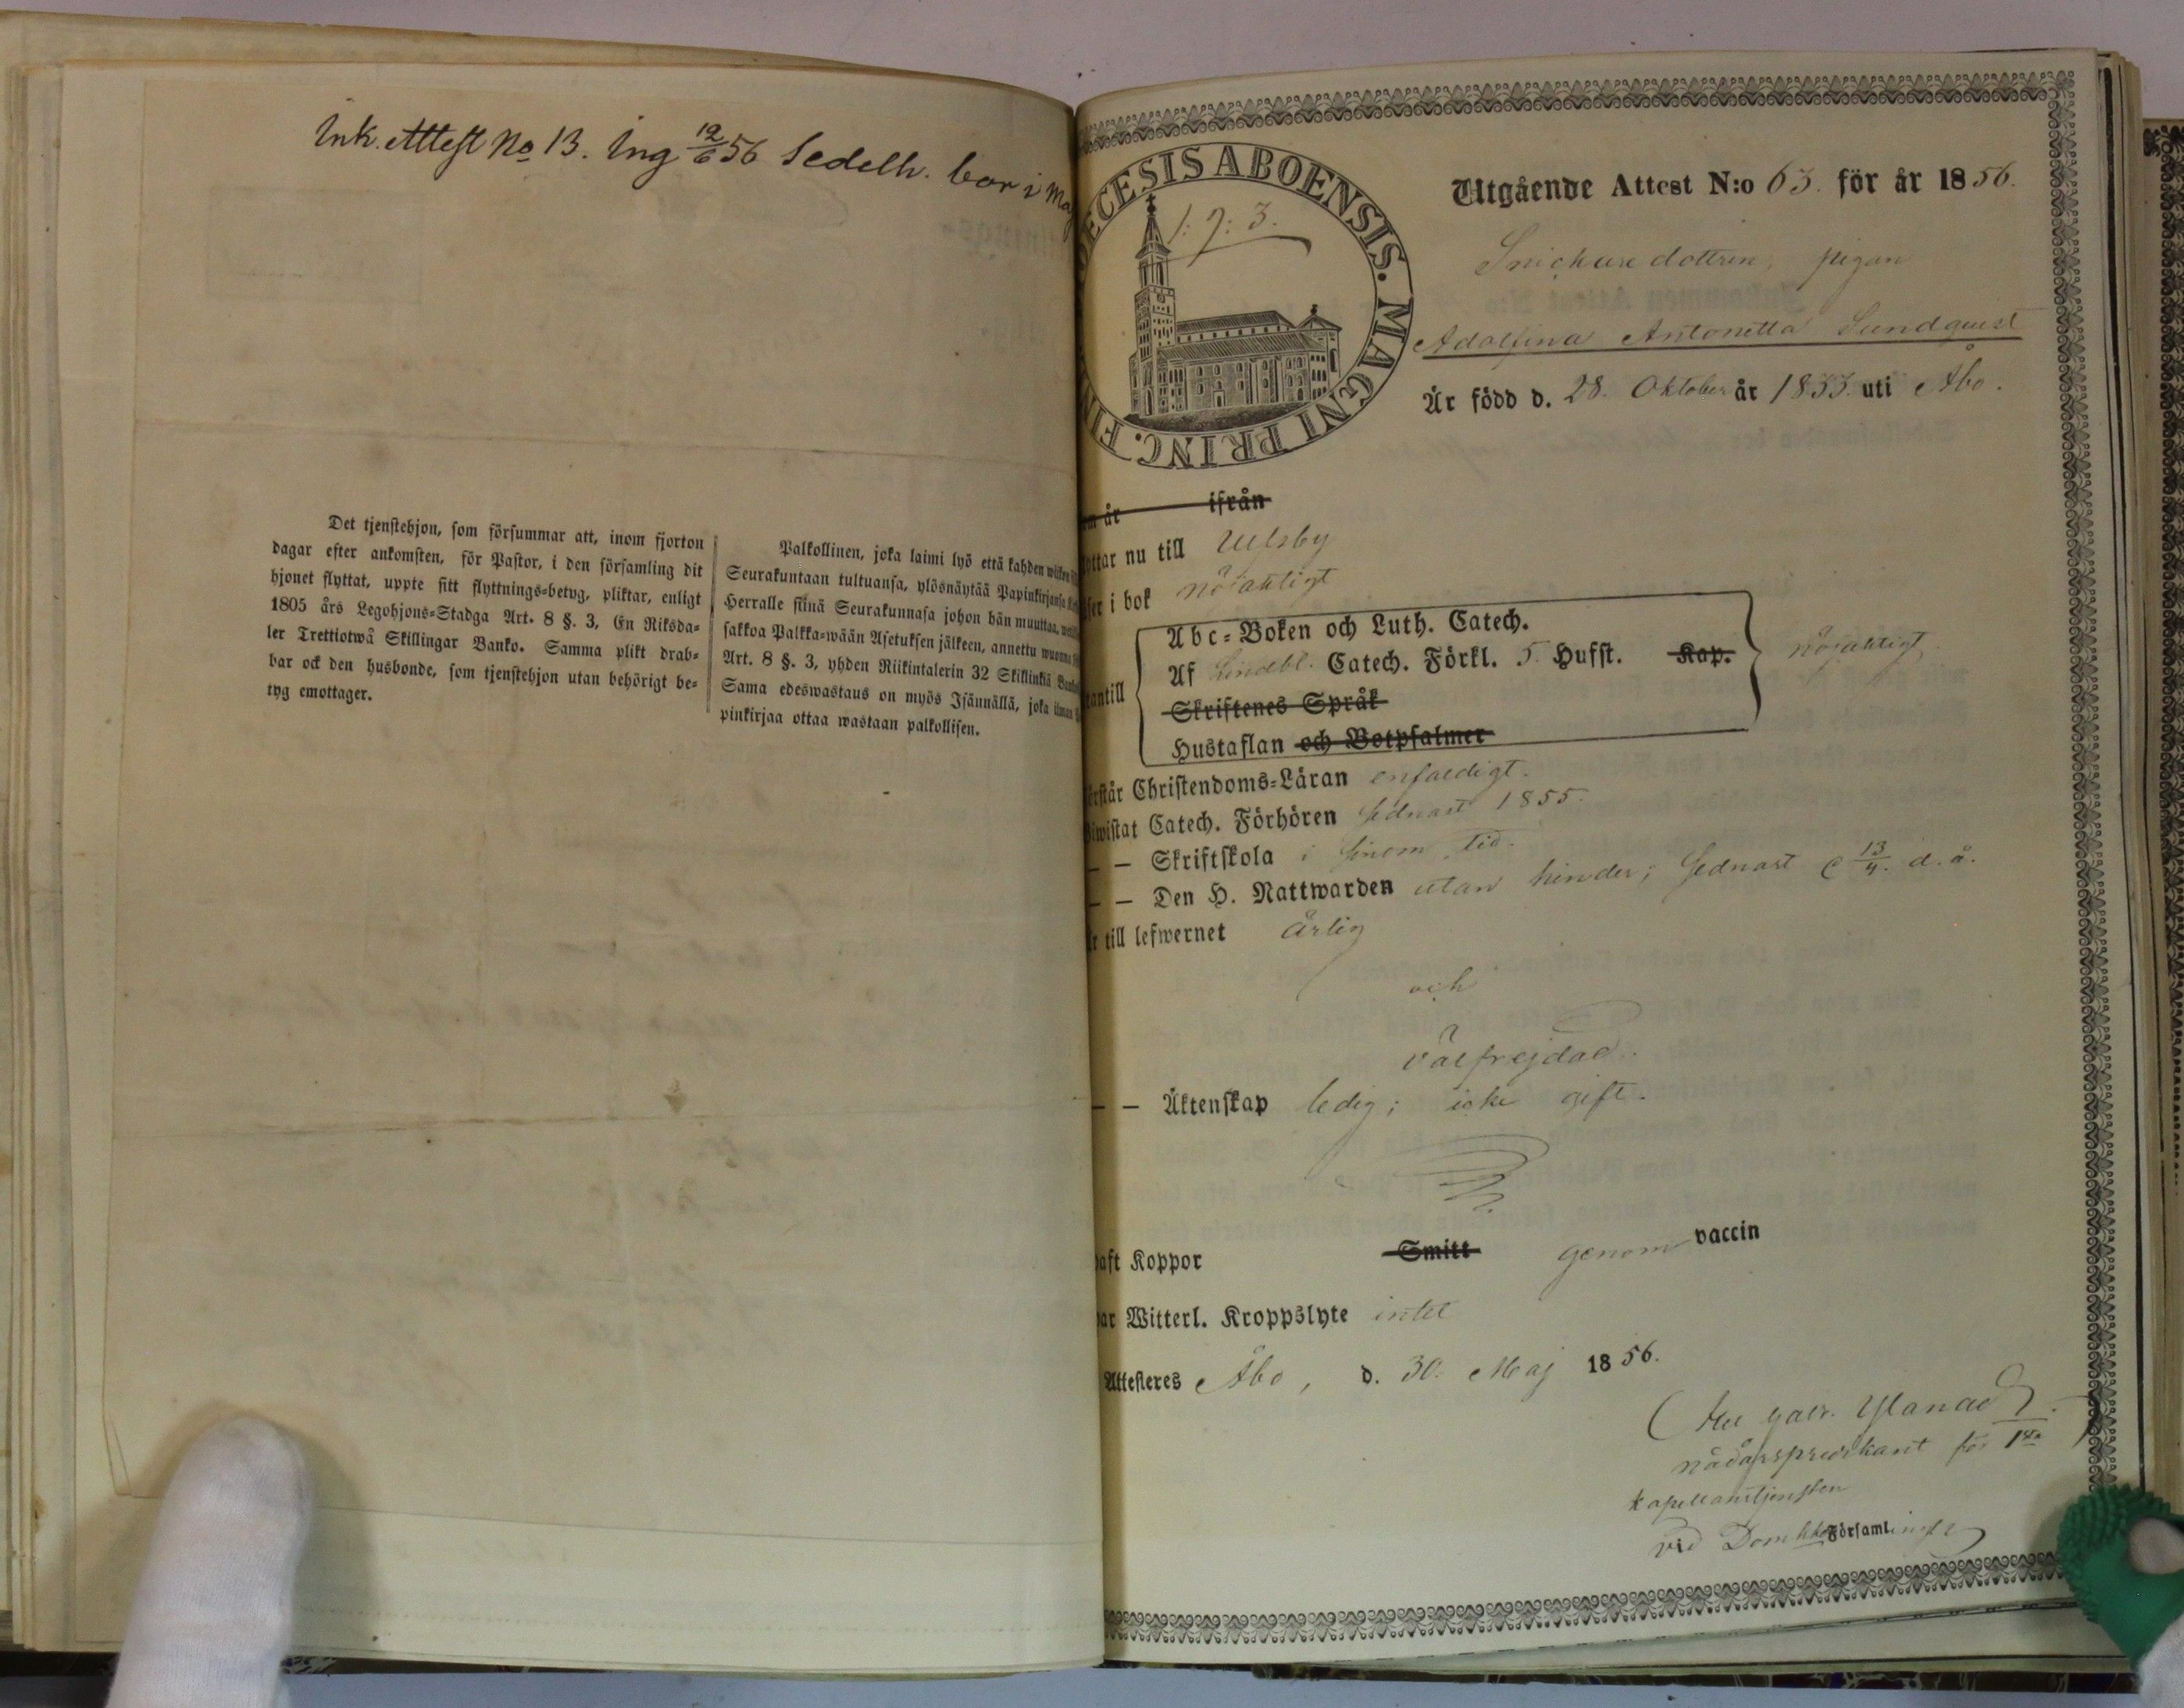 Ink. Attest No 13. Ing 12/6 56 Sedelh. bor i
Det tjenstehjon, som försummar att, inom fjorton
dagar efter ankomsten, för Pastor, i den församling dit
hjonet flyttat, uppte sitt flyttnings=betyg, pliktar, enligt
1805 års Legohjons=Stadga Art. 8 §. 3, En Riksda=
ler Trettiotwå Skillingar Banko. Samma plikt drab=
bar ock den husbonde, som tjenstehjon utan behörigt be=
tyg emottager.
Palkollinen, joka laimi lyö että kahden
Seurakuntaan tultuansa, ylösnäytää Papinkirjansa
Herralle siinä Seurakunnasa johon hän muuttaa,
sakkoa Palkka=wään Asetuksen jälkeen, annettu wuonna
Art. 8 §. 3, yhden Riikintalerin 32 Skillinkiä
Sama edeswastaus on myös Isännällä, joka ilman
pinkirjaa ottaa wastaan palkollisen.
DECESIS ABOENSIS. MAGNI PRINC. FIN
Utgående Attest N:o 63. för år 1856.
Snickare dottren, pigan
Adolfina Antonetta Sundquist
Är född d. 28. Oktober år 1833 uti Åbo.
år ifrån
ttar nu till Ulfsby
ser i bok nöjaktigt
Abc=Boken och Luth. Catech.
Af Lindbl. Catech. Förkl. 5. Hufst. Kap. nöjaktigt
antill
Skriftenes Språk
Hustaflan och Botpsalmer
rstår Christendoms=Läran enfaldigt.
iwistat Catech. Förhören sednast 1855.
— — Skriftskola i sinom tid.
— — Den H. Nattwarden utan hinder; sednast 13/4. d. å.
r till lefwernet ärlig
och
välfrejdad.
— — Äktenskap ledig; icke gift.
aft Koppor Smitt genom vaccin
ar Witterl. Kroppslyte intet
Attesteres Åbo, d. 30. Maj 1856.
nådårspredikant för 1sta
kapellanstjensten
vid Domk Församlingen